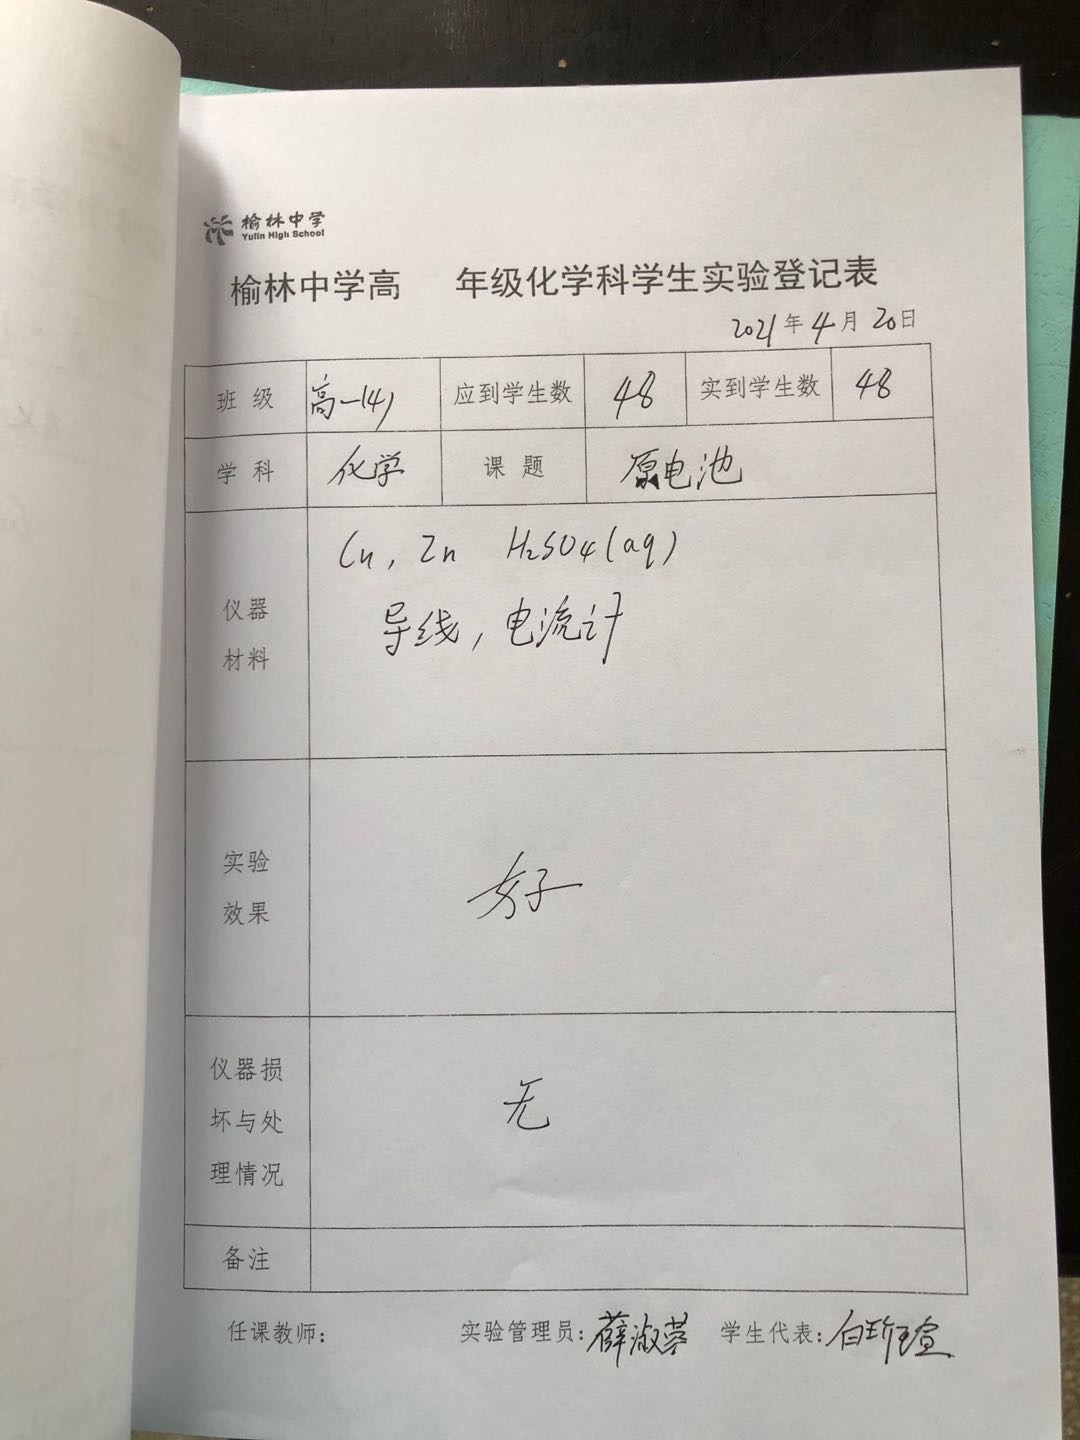 榆林中学
Yulin High School
榆林中学高 年级化学科学生实验登记表
2021年4月20日
班 级 高一(4) 应到学生数 48 实到学生数 48
学 科 化学 课 题 原电池
仪器
材料
Cu, Zn H2SO4(aq)
导线, 电流计
实验
效果
好
仪器损
坏与处
理情况
无
备注
任课教师: 实验管理员: 薛淑蓉 学生代表: 白珍瑄